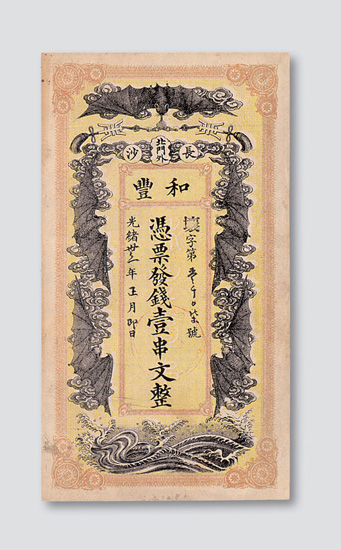 長 北門外 沙
和豐
字第 號
憑票發錢壹串文整
光緒卅三年正月 日